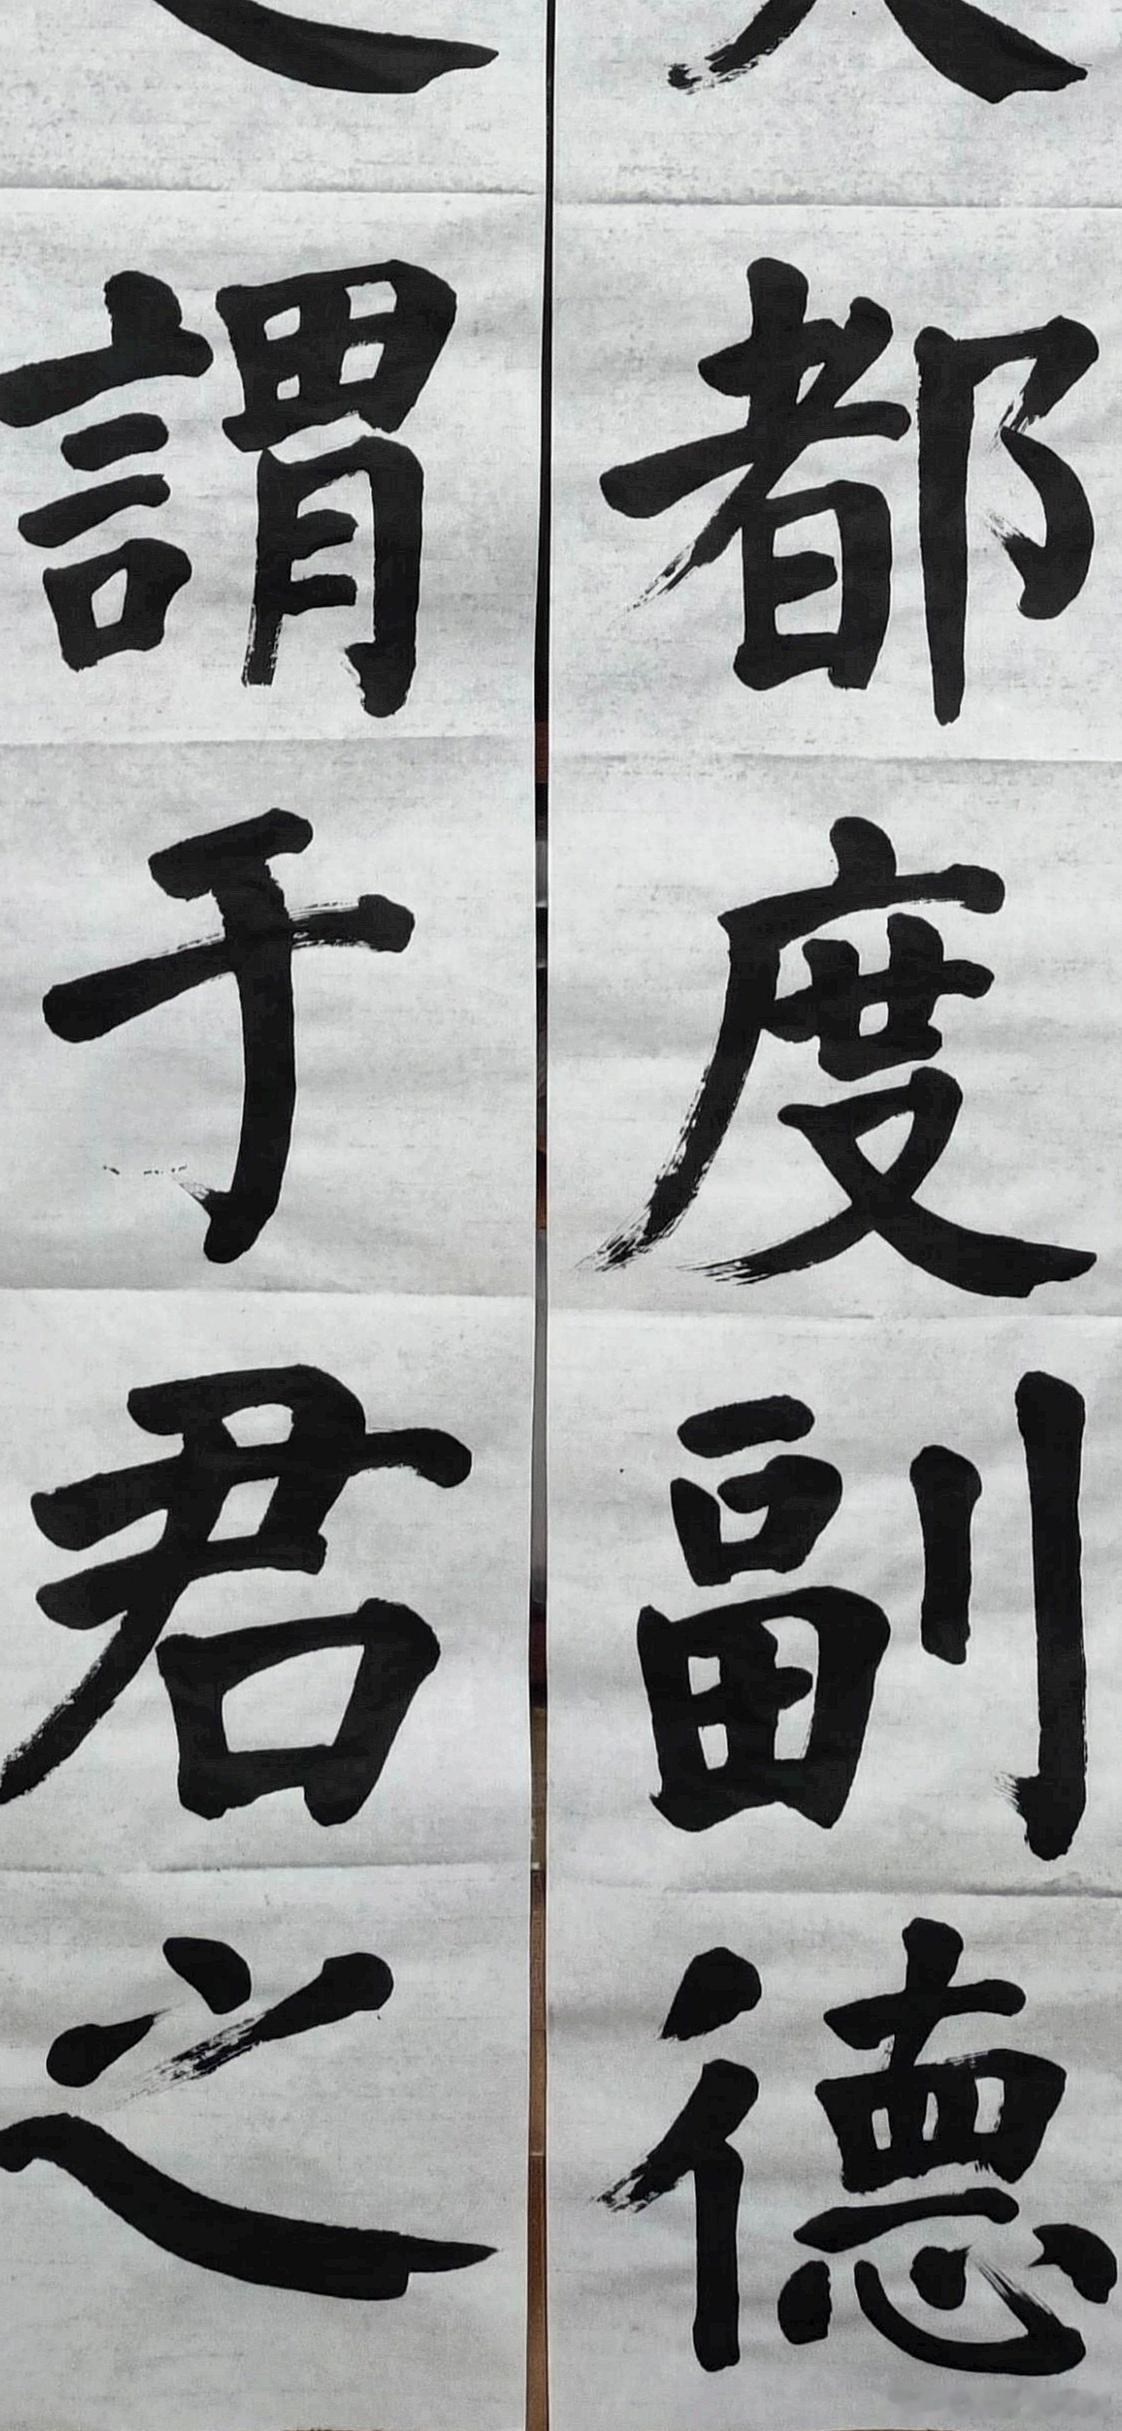 都度副德
謂于君之